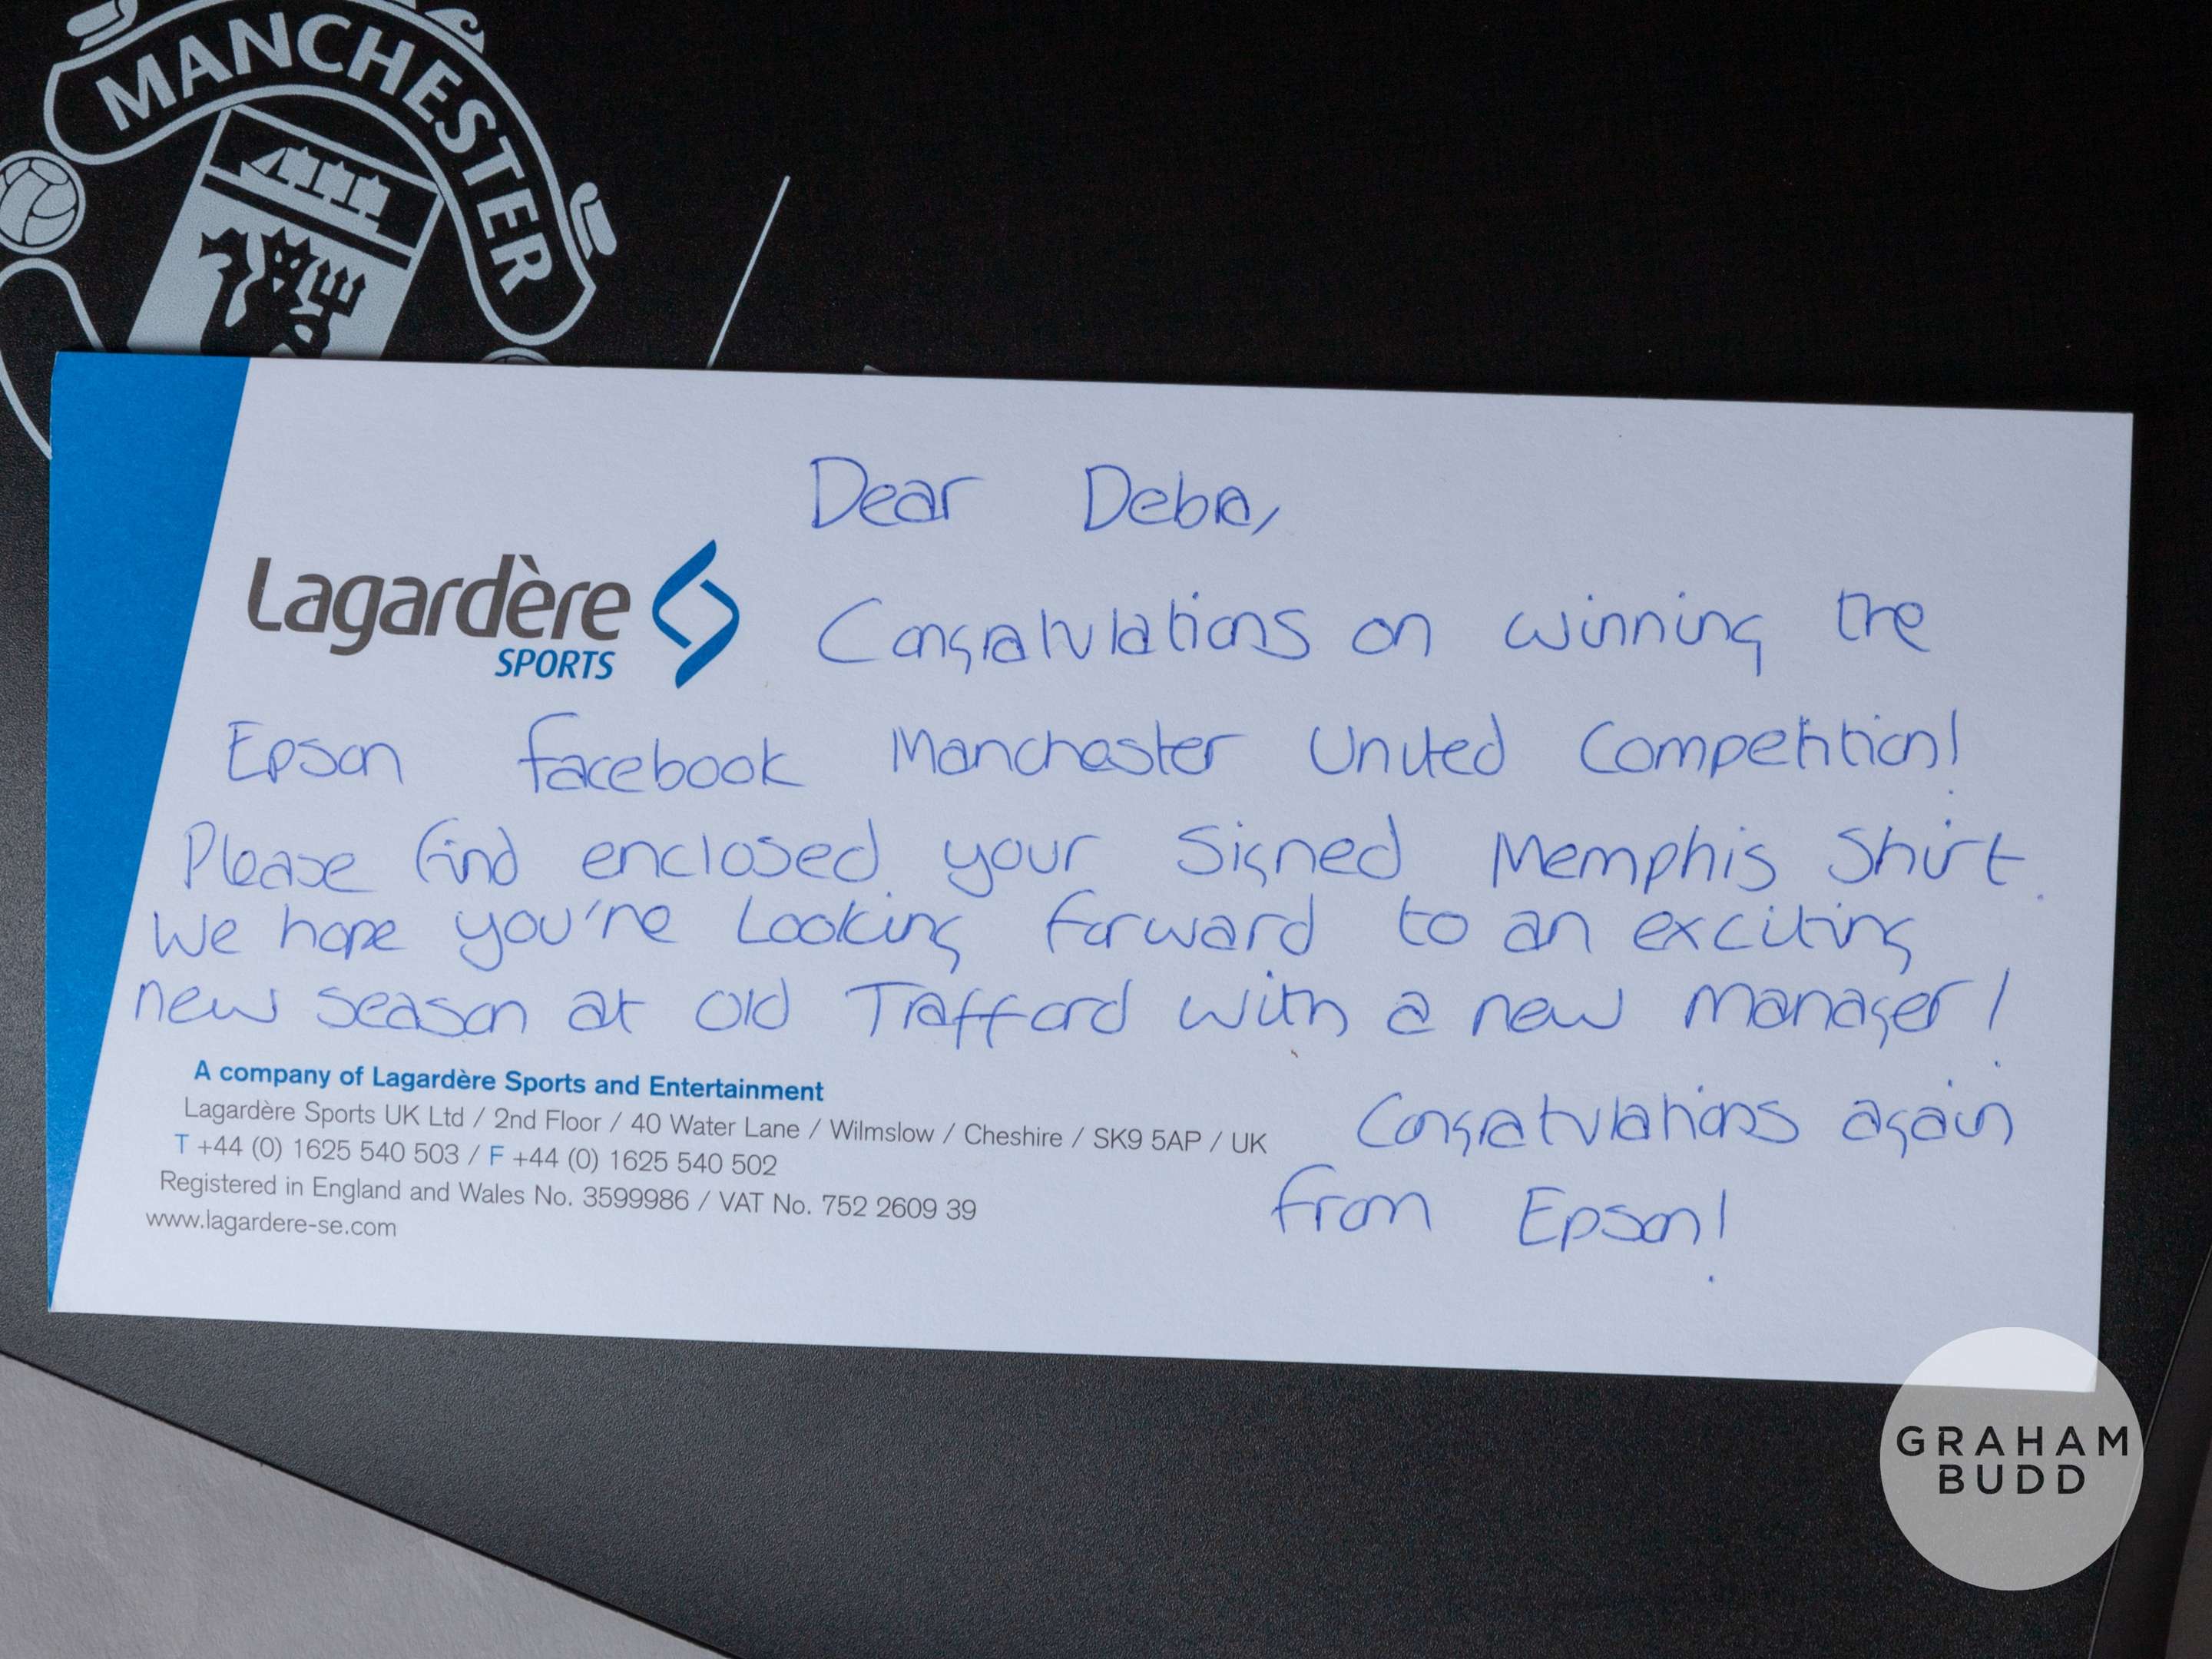 MANCHESTER
Dear Debra,
Lagardère
SPORTS
Congratulations on winning the
Epson facebook Manchester United Competition!
Please find enclosed your signed Memphis shirt.
We hope you're looking forward to an exciting
new season at Old Trafford with a new manager!
A company of Lagardère Sports and Entertainment
Lagardère Sports UK Ltd / 2nd Floor / 40 Water Lane / Wilmslow / Cheshire / SK9 5AP / UK
T +44 (0) 1625 540 503 / F +44 (0) 1625 540 502
Registered in England and Wales No. 3599986 / VAT No. 752 2609 39
www.lagardere-se.com
Congratulations again
from Epson!
GRAHAM
BUDD